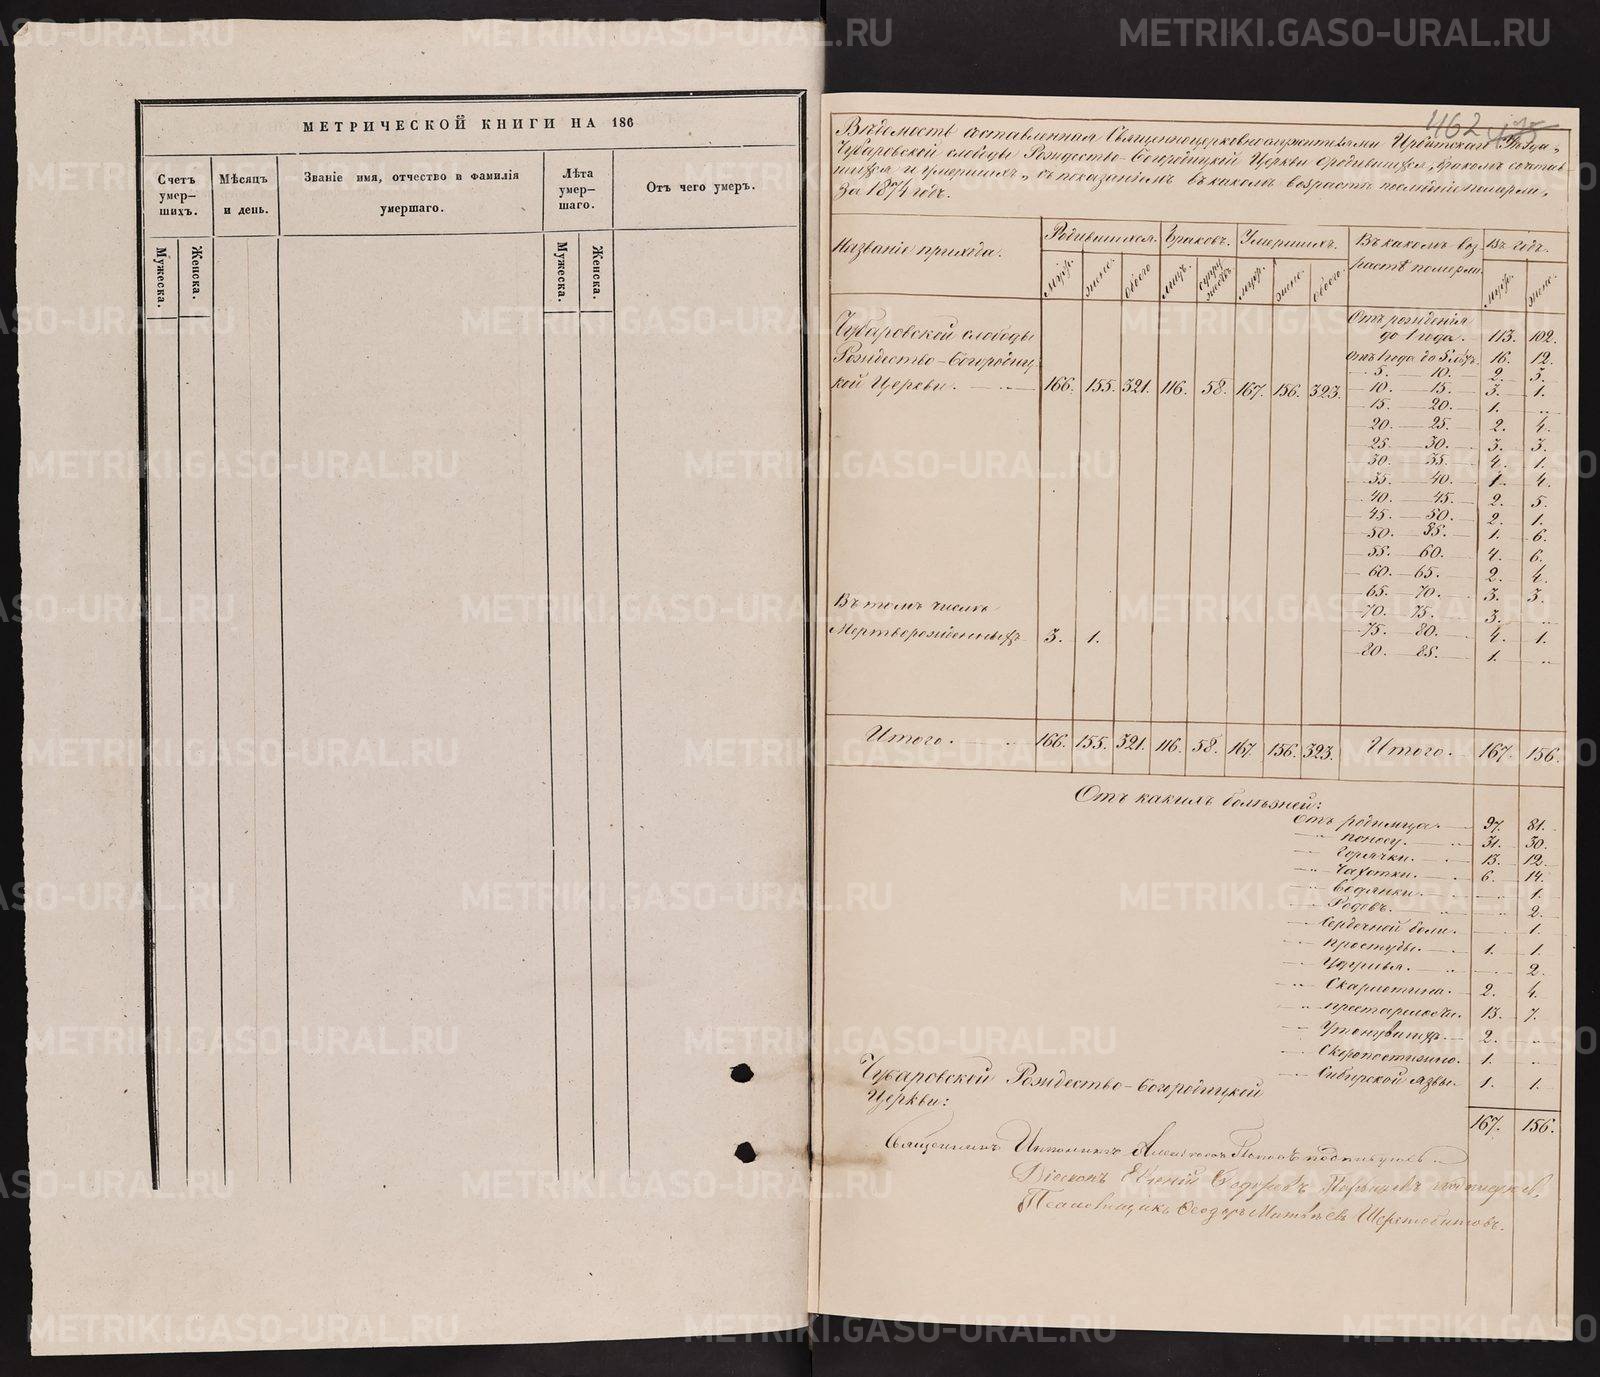 МЕТРИЧЕСКОЙ КНИГИ НА 186
Счетъ умер-шихъ.
Мѣсяцъ и день.
Званіе имя, отчество и фамилія умершаго.
Лѣта умер-шаго.
Отъ чего умеръ.
Мужеска.
Женска.
Мужеска.
Женска.
462 175
Вѣдомость составленная Священноцерковнослужителями Ирбитскаго уѣзда
Чубаровской слободы Рождество-Богородицкой Церкви о родившихся, бракомъ сочетав-
шихся и умершихъ, съ показаніемъ въ какомъ возрастѣ
За 1874 годъ.
Названіе прихода.
Родившихся. Браковъ. Умершихъ. Въ какомъ воз-растѣ померли. Въ годъ.
муж. женс. обоего лицъ. супружествъ муж. женс. обоего. муж. женс.
Чубаровской слободы
Рождество-Богородиц-
кой Церкви. 166. 155. 321. 116. 58. 167. 156. 323.
Отъ рожденія
до 1 года. 113. 102.
Отъ 1 года до 5 лѣтъ. 16. 12.
5. 10. 2. 3.
10. 15. 3. 1.
15. 20. 1. ..
20. 25. 2. 4.
25. 30. 3. 3.
30. 35. 4. 1.
35. 40. 1. 4.
40. 45. 2. 5.
45. 50. 2. 1.
50. 55. 1. 6.
55. 60. 4. 6.
60. 65. 2. 4.
65. 70. 3. 3.
70. 75. 3. ..
75. 80. 4. 1.
80. 85. 1. ..
Въ томъ числѣ
Мертворожденныхъ 3. 1.
Итого. 166. 155. 321. 116. 58. 167. 156. 323. Итого. 167. 156.
Отъ какихъ болѣзней:
Отъ родимца. 97. 81.
" поносу. 31. 30.
" Горячки. 13. 12.
" Чахотки. 6. 14.
" Водянки. 1.
" Родовъ. 2.
" Сердечной боли. 1.
" простуды. 1. 1.
" Удушья. 2.
" Скарлотина. 2. 4.
" престарелости. 13. 7.
" Утонувшихъ 2. ..
" Скоропостижно. 1. ..
" Сибирской язвы. 1. 1.
167. 156.
Чубаровской Рождество-Богородицкой
Церкви:
Священникъ Иннокентій Поповъ подписуюсь
Діаконъ Евгеній Ѳедоровъ
Псаломщикъ Ѳеодоръ Матѳеевъ Шерстобитовъ.
METRIKI.GASO-URAL.RU